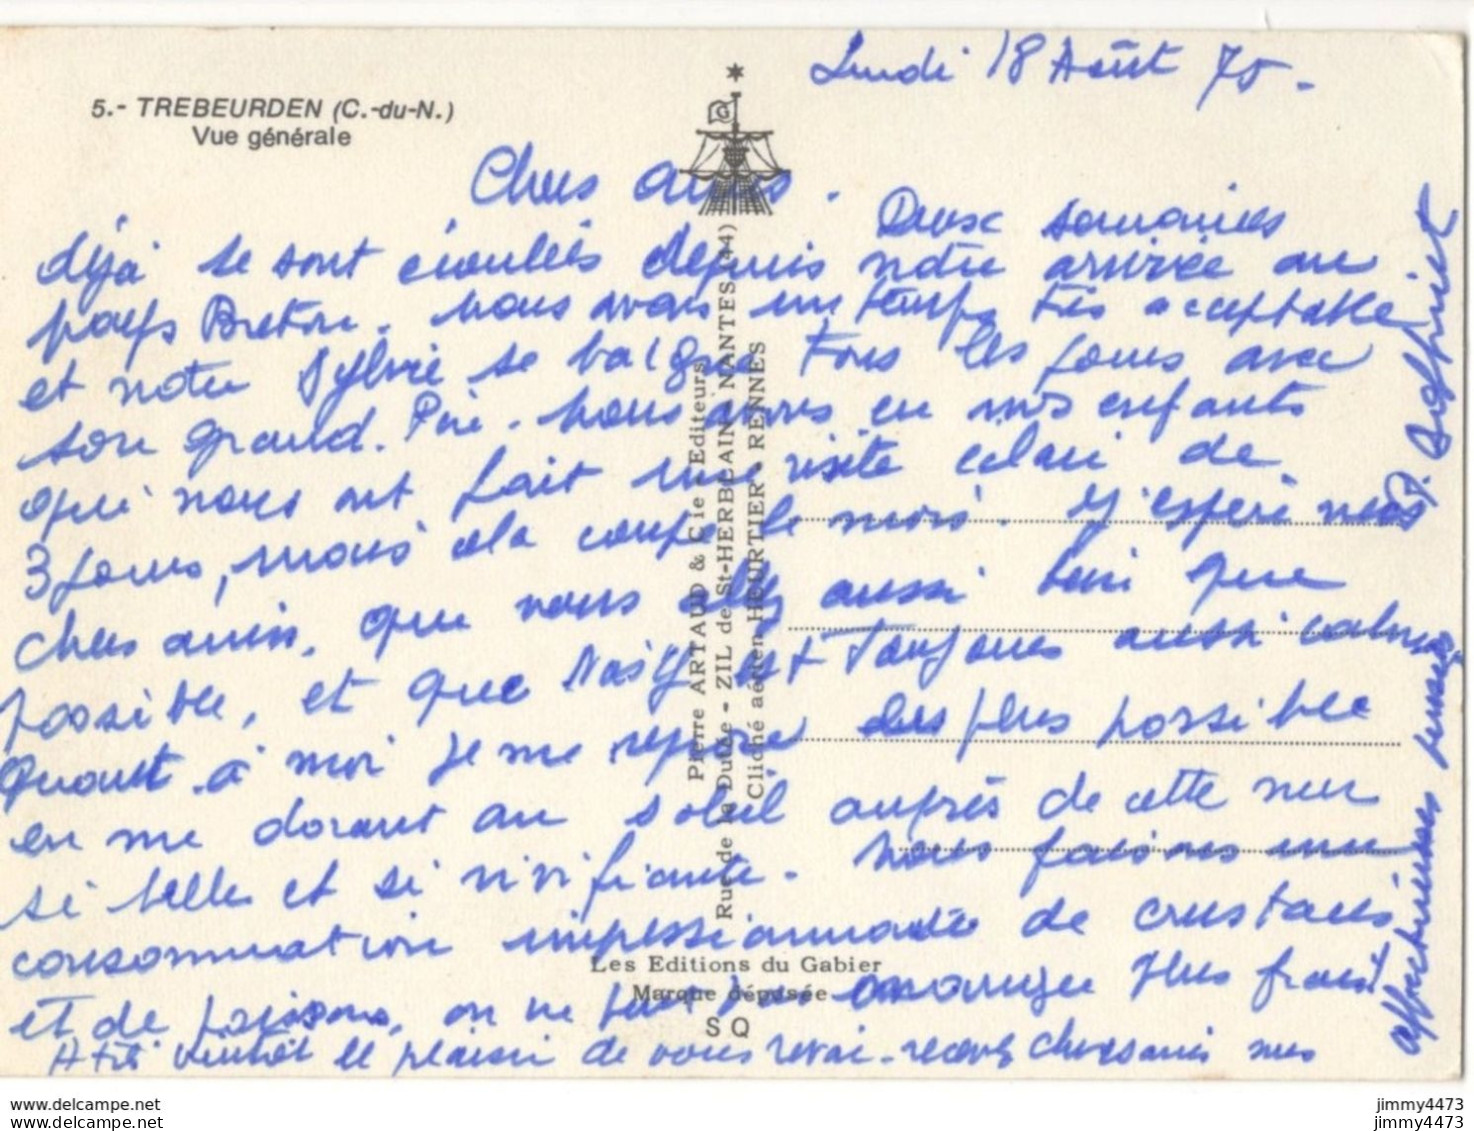 Lundi 18 Août 75.
5.- TREBEURDEN (C.-du-N.)
Vue générale
Chers amis.
Deux semaines
déjà se sont écoulées depuis notre arrivée au
pays Breton. Nous avons un temps très acceptable
et notre Sylvie se baigne tous les jours avec
son grand-Père. Nous avons eu nos enfants
qui nous ont fait une visite éclair de
3 jours, nous a coupé le mois. J'espère
chers amis, que vous allez aussi bien que
possible, et que est toujours aussi calme
Quant à moi je me repose le plus possible
en me dorant au soleil auprès de cette mer
si belle et si vivifiante. Nous faisons une
consommation impressionnante de crustacés
et de poissons, on ne peut pas manger plus frais
A très bientôt le plaisir de vous revoir. recevez chers amis mes
affectueuses pensées.
Pierre ARTAUD & Cie - Editeurs
Rue de la Dutée - ZIL de St-HERBLAIN NANTES (44)
Cliché aérien HEURTIER - RENNES
Les Editions du Gabier
Marque déposée
S Q
delcampe.net
delcampe.net
jimmy4473
jimmy4473